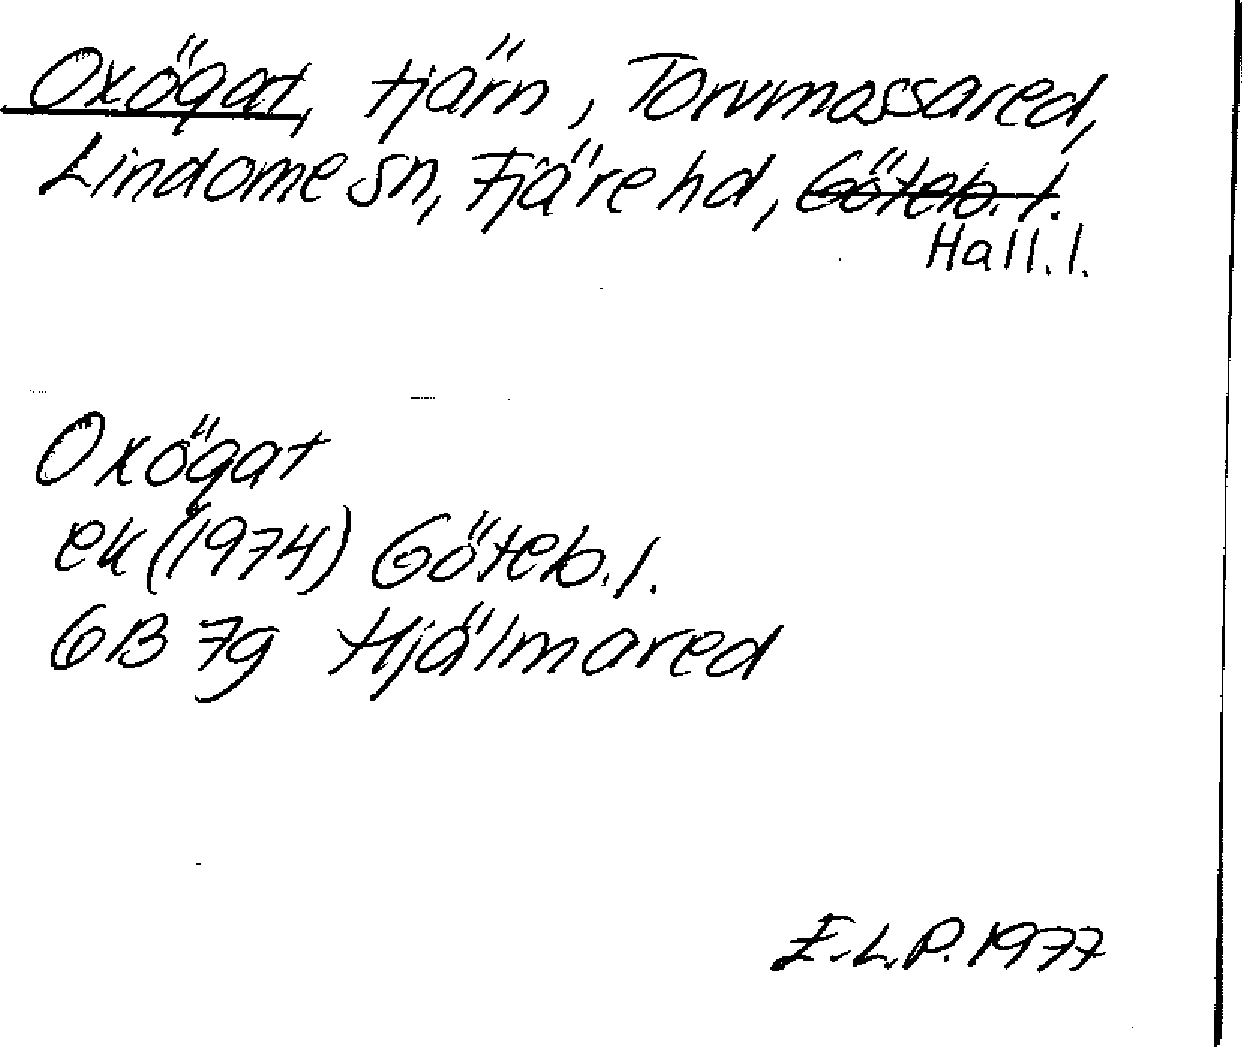 Oxögat, tjärn, Torvmossared,
Lindome sn, Fjäre hd, Göteb. l.
Hall. l.
Oxögat
ek (1974) Göteb. l.
6B 7g Hjälmared
E.L.P. 1977